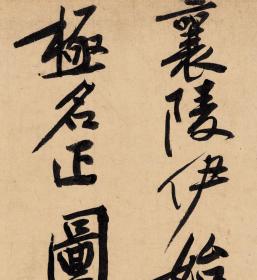 襄陵伊始
極名正圖